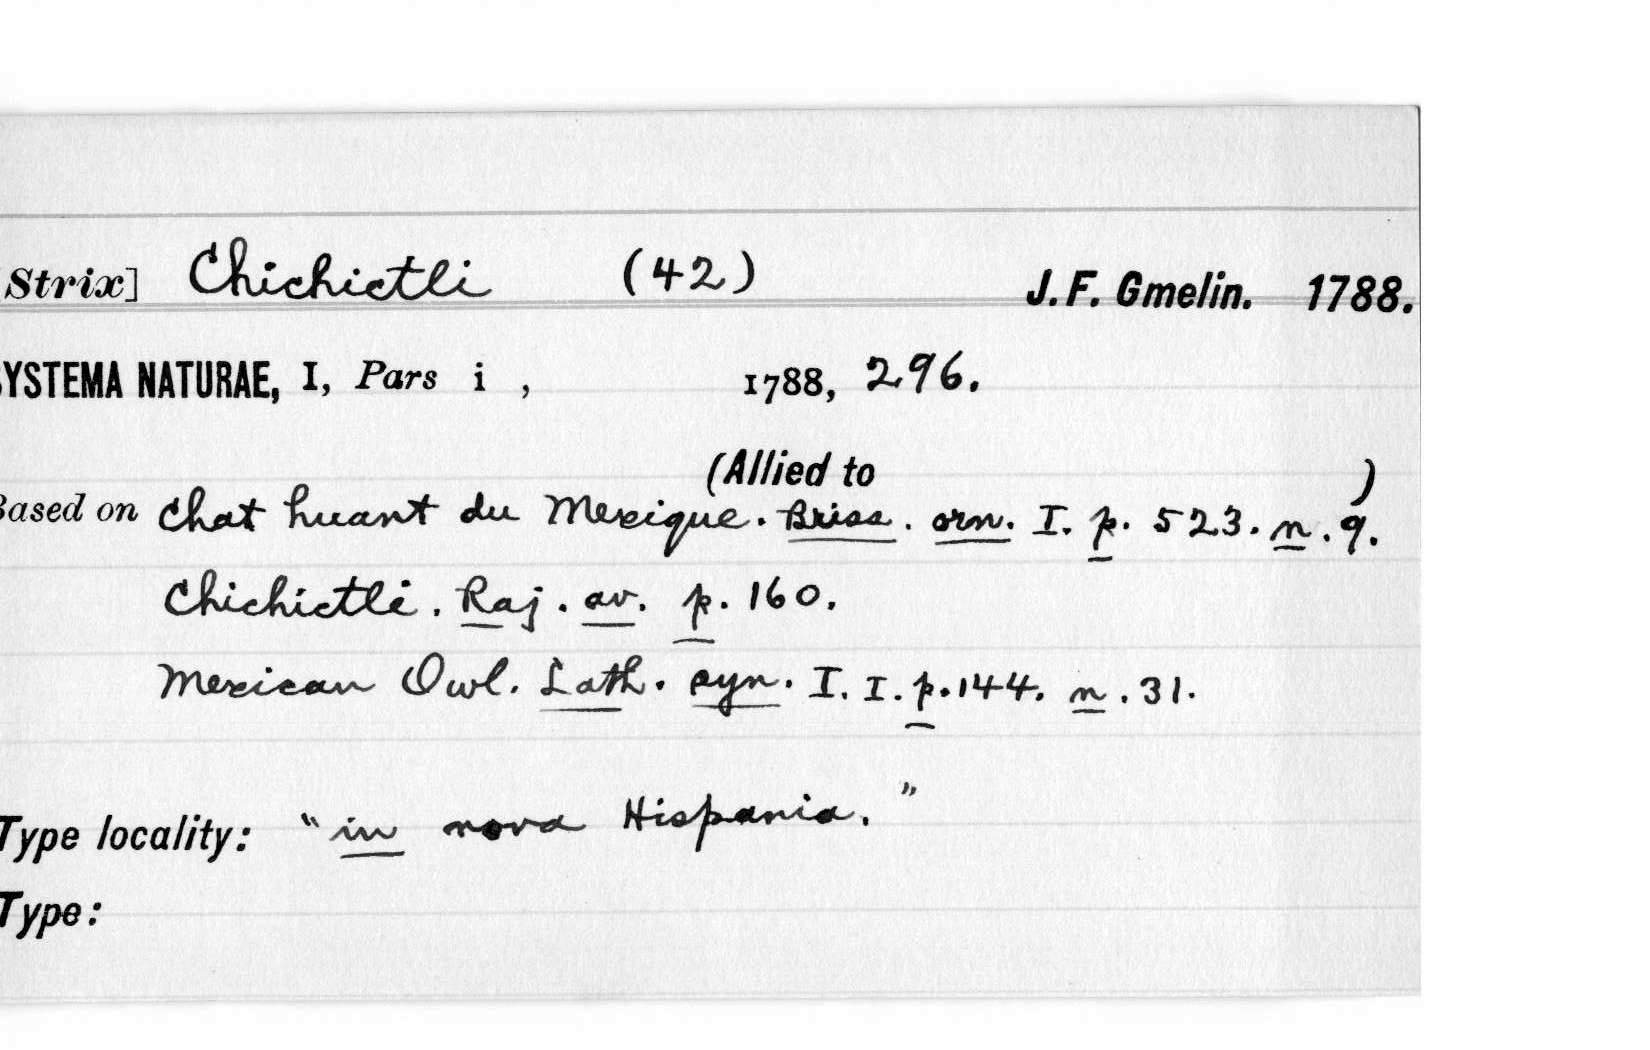 Strix] Chichictli (42) J. F. Gmelin. 1788.
SYSTEMA NATURAE, I, Pars i , 1788, 296.
(Allied to )
Based on Chat huant du Mexique. Briss. orn. I. p. 523. n. 9.
Chichictli. Raj. av. p. 160.
Mexican Owl. Lath. syn. I. I. p. 144. n. 31.
Type locality: "in nova Hispania."
Type: